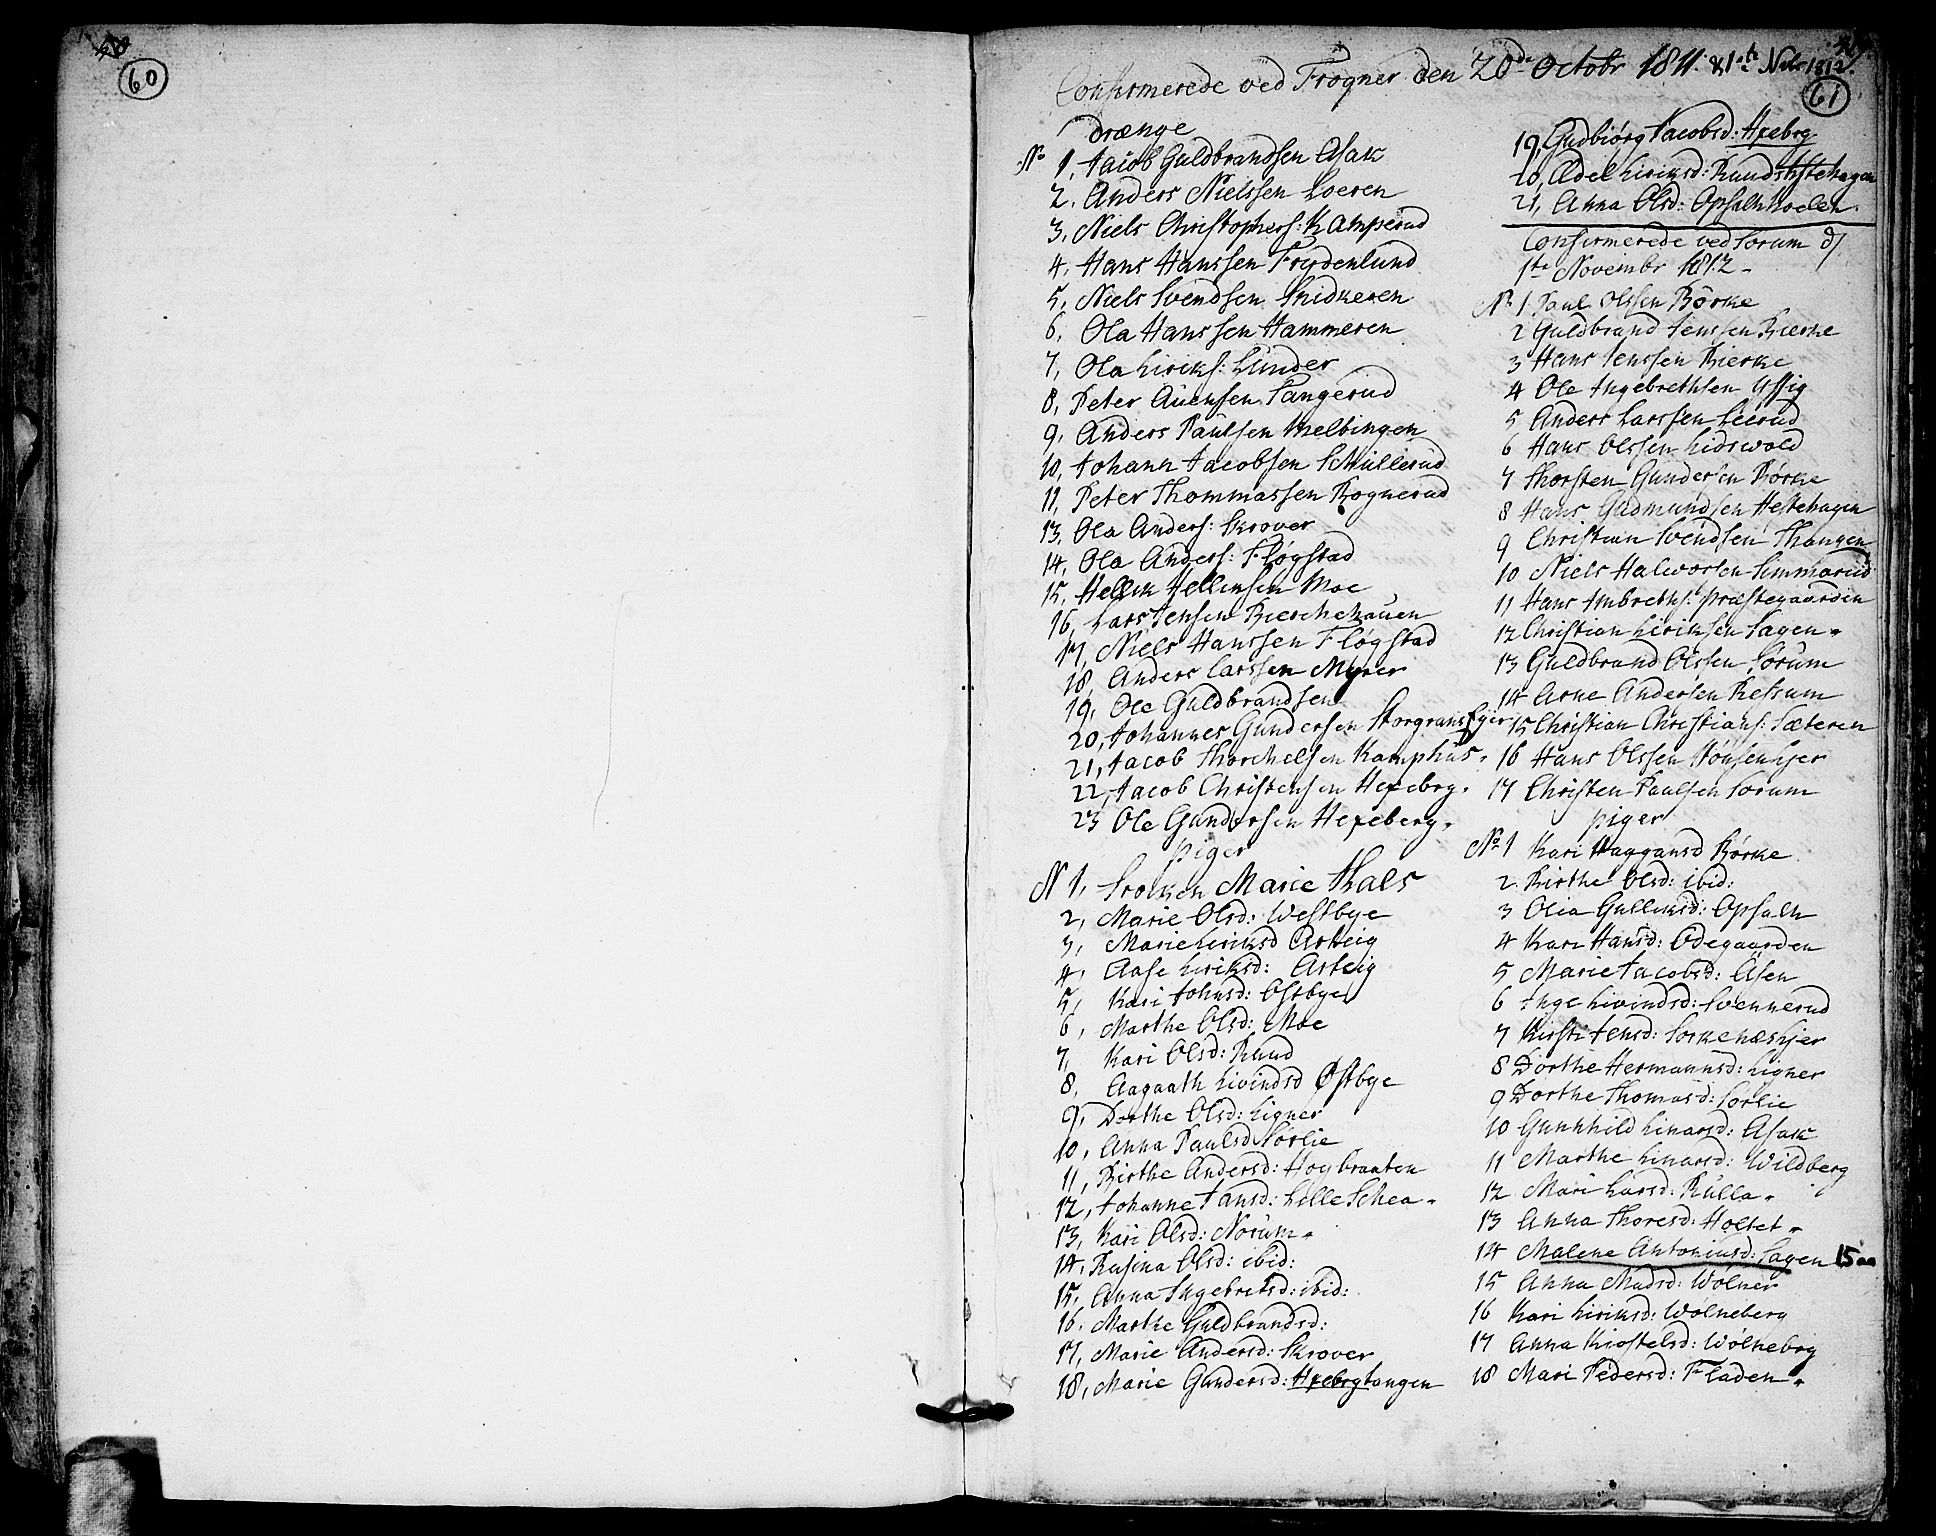 60
61
Confirmerede ved Frogner den 20de Octobr 1811. & 1ste Nvbr 1812.
Drænge
No 1, Jacob Guldbrandsen Asak
2. Anders Nielssen Loeren
3, Niels Christophers: Kamperud
4, Hans Hanssen Frydenlund
5, Niels Svendsen Snidkeren
6, Ola Hanssen Hammeren
7, Ola Eiriks: Lunder
8, Peter Auensen Tangerud
9, Anders Paulsen Melbingen
10, Johann Jacobsen Schullerud
11, Peter Thommassen Rognerud
13, Ola Anders: Skrover
14, Ola Anders: Fløgstad
15, Hellik Hellensen Moe
16, Lars Jensen Bierchehauen
17, Niels Hanssen Fløgstad
18 Anders Larssen Myrer
19, Ole Guldbrandsen
20, Johannes Gundersen
21, Jacob Thorchelsen Kamphus.
22, Jacob Christensen Hexebrg.
23 Ole Gundersen Hexeberg.
piger
N 1, Frøiken Marie Hals
2, Marie Olsd: Westbye
3, Marie Eiriksd Arteig
4, Aase Eiriksd: Arteig
5, Kari Johnsd: Østbye
6, Marthe Olsd: Moe
7, Kari Olsd: Ruud
8, Aagaath Eivindsd Østbye
9, Dorthe Olsd: Ligner
10, Anna Paulsd Sørlie
11, Birthe Andersd: Høybraaten
12, Johanne Jansd: Lille Schea.
13, Kari Olsd: Norum.
14, Rusina Olsd: ibid:
15, Anna Ingebretsd: ibid:
16. Marthe Guldbrandsd:
17, Marie Andersd: Skrover
18, Marie Gundersd: Hxebrgtangen
19, Gudbiørg Jacobsd: Hxebrg
20, Ædel Eiriksd: Ruudshstehagen
21, Anna Olsd: Opsalhhoelen.
Confirmerede ved Sorum d/
1te Novembr 1812-
No 1. Paul Olssen Børke
2 Guldbrand Jenssen Bierke
3 Hans Jenssen Bierke
4 Ole Ingebrethsen Yssig
5 Anders Larssen Leerud
6 Hans Olssen Eidswold
7 Thorsten Gundersen Børke
8 Hans Gudmundsen Hestehagen
9 Christian Svendsen Thangen
10 Niels Halworsen Simmarud
11 Hans Imbreths: præstegaarden
12 Christian Eiriksen Sagen.
13 Guldbrand Olssen Sørum
14 Arne Andersen Refsum
15 Christian Christians: Sæteren
16 Hans Olssen
17 Christen Paulsen Sorum
piger
No 1 Kari Haagansd Børke
2. Birthe Olsd: ibid:
3 Olia Gulliksd: Opsalh
4 Kari Hansd: Ødegaarden
5 Marie Jacobsd: Asen
6 Inge Eivindsd: Svennerud
7 Kirsti Jensd: Sorkenæshjer
8 Dorthe Hermannsd: Ligner
9 Dorthe Thomasd: Sorlie
10 Gunhhild Einarsd: Asak
11 Marthe Einarsd: Wildberg
12 Mari Larsd: Rulla.
13 Anna Thoresd: Holtet.
14 Malene Antoniusd: Sagen 15 aa
15 Anna Madsd: Wølner
16 Kari Eiriksd: Wolneberg
17 Anna Kiostelsd: Wølnebrg
18 Mari Pedersd: Fladen.